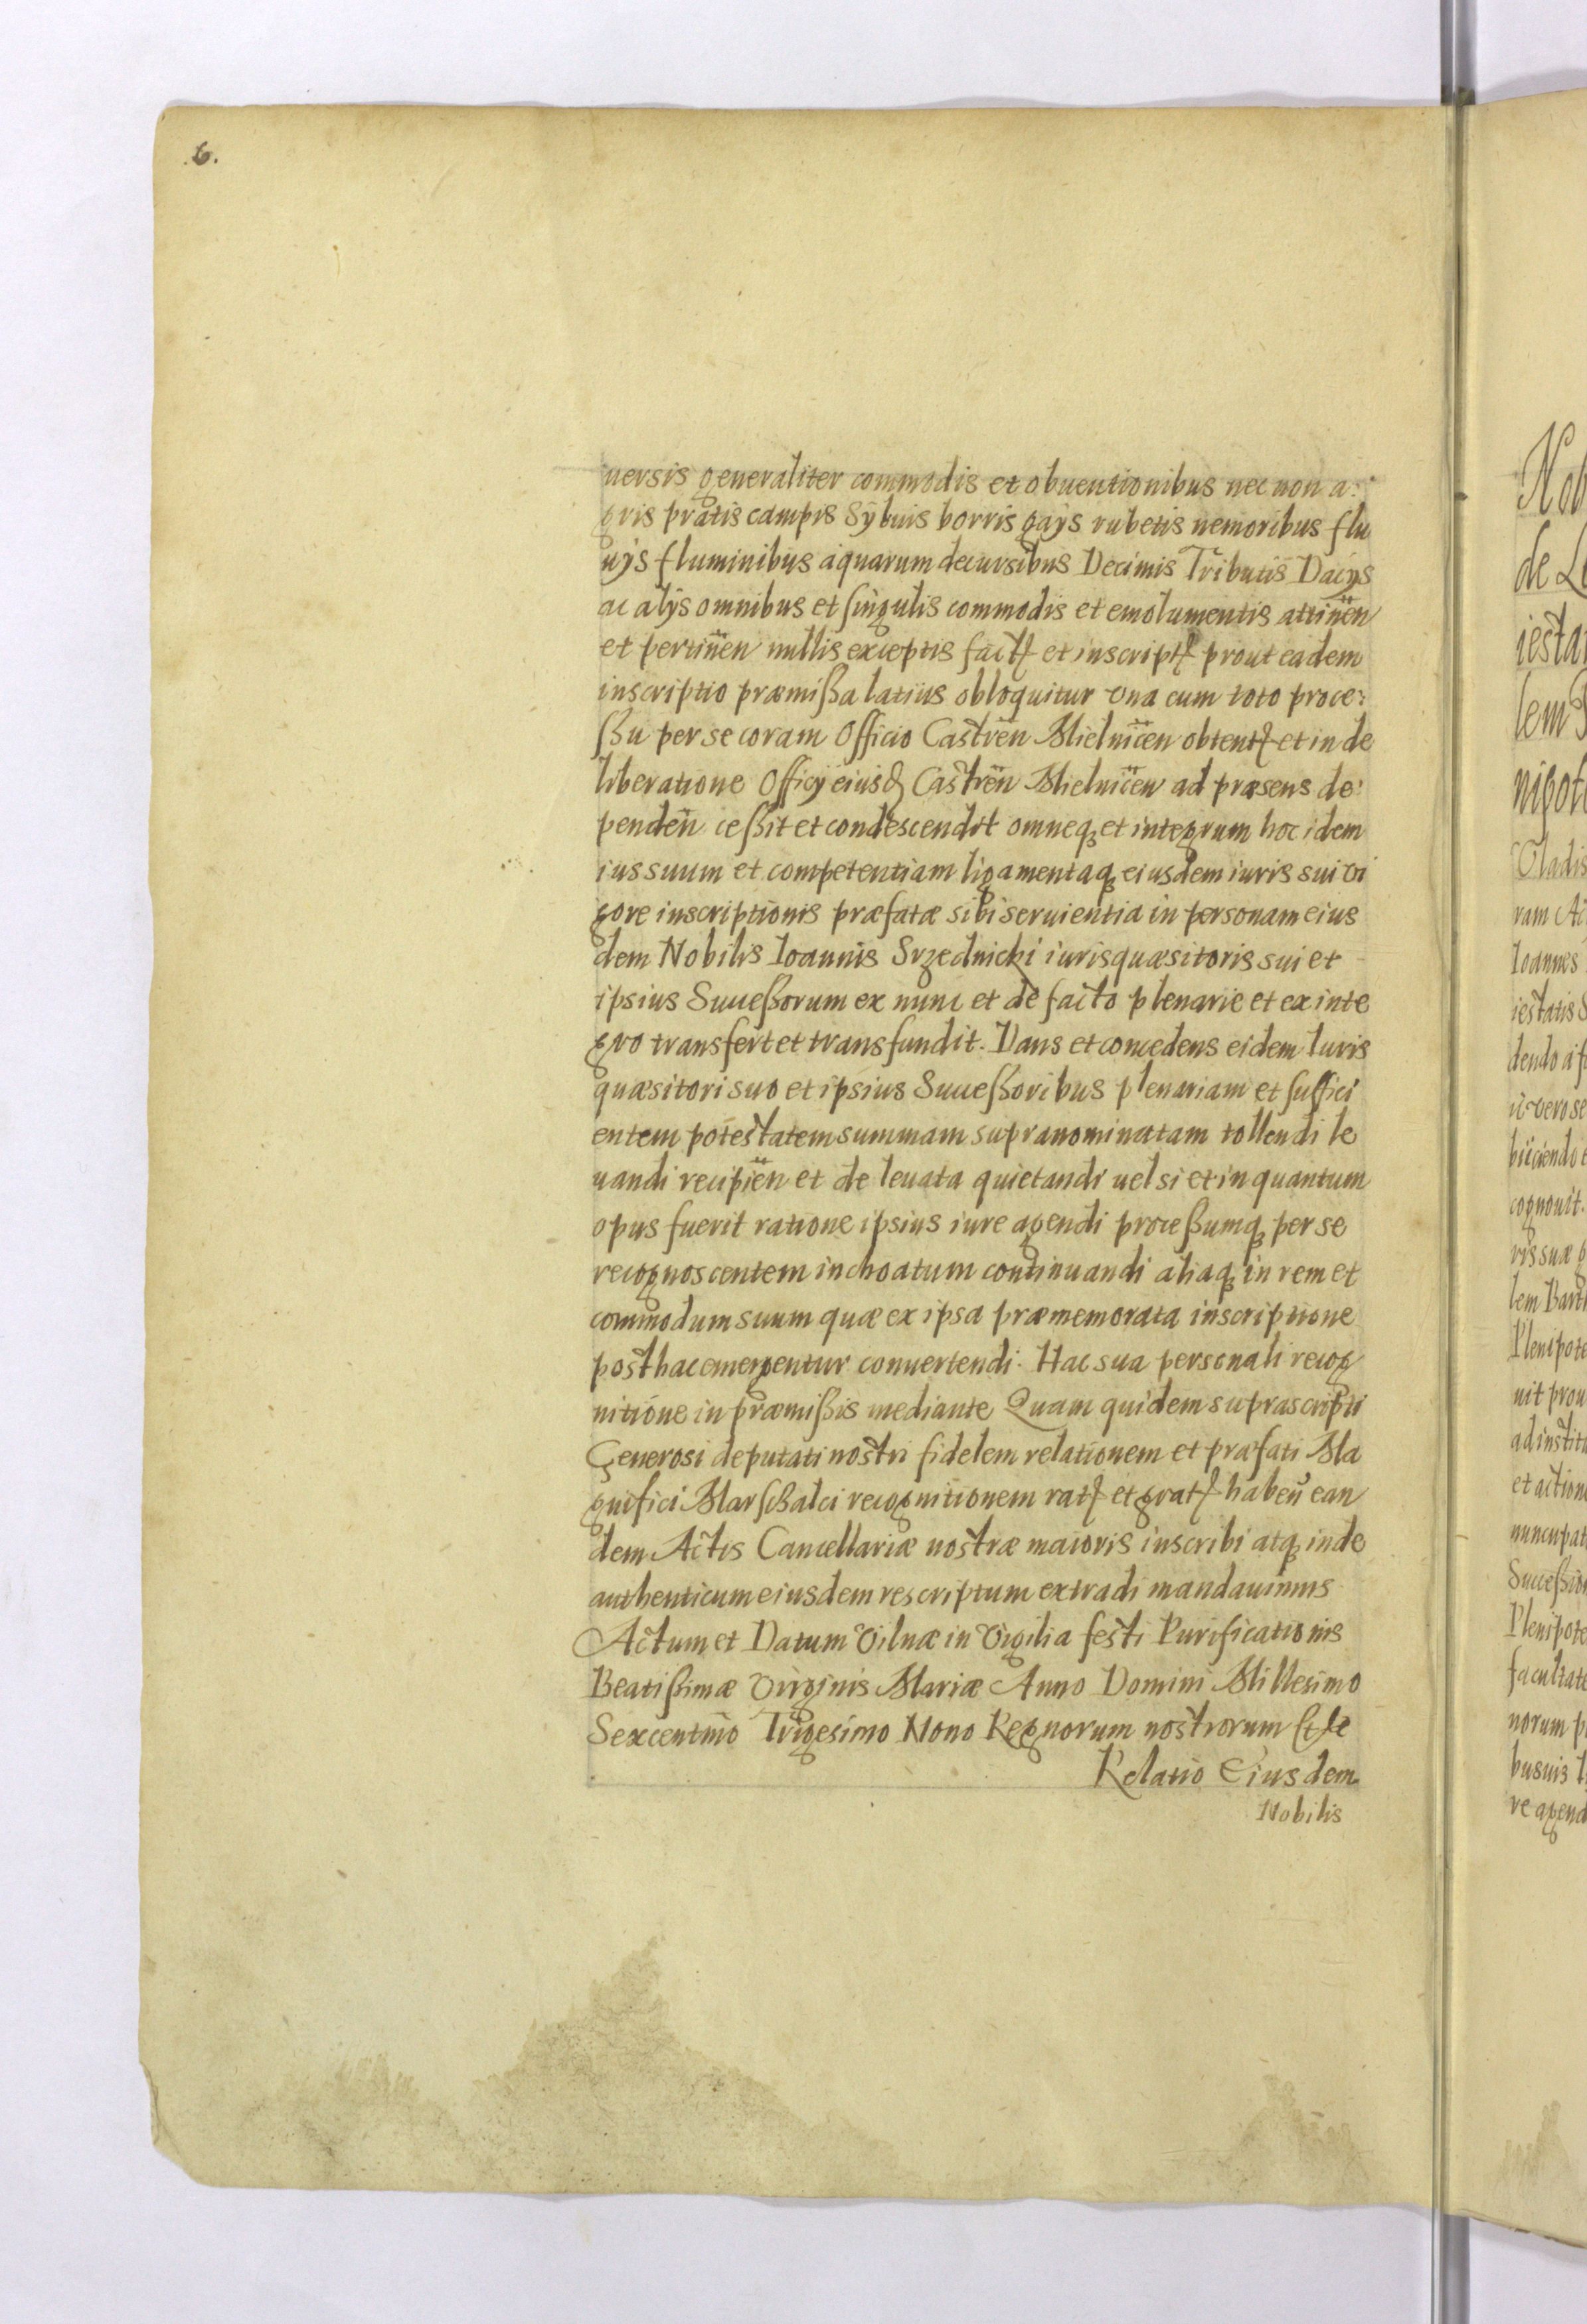 .6.
uersis generaliter commodis et obuentionibus nec non a:
gris pratis campis Syluis borris gays rubetis nemoribus flu
uys fluminibus aquarum decursibus Decimis Tributis Dacys
ac alys omnibus et singulis commodis et emolumentis attinen̈
et pertinen̈ nullis exceptis fact et inscript prout eadem
inscriptio præmißa latius obloquitur vna cum toto proce:
ßu per se coram Officio Castren̈ Mielnicen̈ obtent et in de
liberatione Officy eiusd Castren̈ Mielnicen̈ ad præsens de:
penden̈ ceßit et condescendit omneq et integrum hoc idem
ius suum et competentiam ligamentaq eiusdem iuris sui vi
gore inscriptionis præfatæ sibi seruientia in personam eius
dem Nobilis Ioannis Srzednicki iurisquæsitoris sui et
ipsius Succeßorum ex nunc et de facto plenarie et ex inte
gro transfert et transfundit. Dans et concedens eidem Iuris
quæsitori suo et ipsius Succeßoribus plenariam et suffici
entem potestatem summam supranominatam tollendi le
uandi recipien̈ et de leuata quietandi uel si et in quantum
opus fuerit ratione ipsius iure agendi proceßumq per se
recognoscentem inchoatum continuandi aliaq in rem et
commodum suum quæ ex ipsa præmemorata inscriptione
posthac emergentur conuertendi. Hac sua personali recog
nitione in præmißis mediante Quam quidem suprascripti
Generosi deputati nostri fidelem relationem et præfati Ma
gnifici Marschalci recognitionem rat et grat haben̈ ean
dem Actis Cancellariæ nostræ maioris inscribi atq inde
authenticum eiusdem rescriptum extradi mandauimus
Actum et Datum Vilnæ in Vigilia festi Purificationis
Beatißimæ Virginis Mariæ Anno Domini Millesimo
Sexcentmo Trigesimo Nono Regnorum nostrorum
Relatio Eiusdem
Nobilis
Nob
de
iesta
lem
nipot
Vladis
ram Ac
Ioannes
iestatis S
dendo
vero se
cognouit.
ris suæ
lem Bart
Plenipote
nit prou
ad instit
et action
nuncupat
Succeßio
Plenipote
facultate
norum p
busuis
re agend